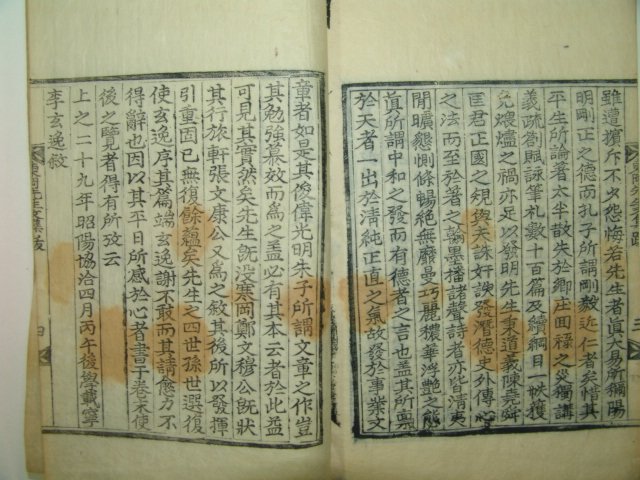 雖遭擯斥不少怨悔若先生者眞大易所稱陽
明剛正之德而孔子所謂剛毅近仁者矣惜其
平生所論著太半散失於卿庄回祿之災獨講
義疏劄諷詠筆札數十百篇及續綱目一帙獲
免煨燼之禍亦足以發明先生秉道義陳堯舜
匡君正國之規與夫誅奸諛發潛德史外傳心
之法而至於著之翰墨播諸聲詩者亦皆清夷
閒曠懇惻條暢絕無靡曼巧麗穠華浮艶之態
眞所謂中和之發而有德者之言也盖其所稟
於天者一出於清純正直之氣故發於事業文
章者如是其俊偉光明朱子所謂文章之作豈
其勉強慕效而爲之盖必有其本云者於此益
可見其實然矣先生旣没寒岡鄭文穆公旣狀
其行旅軒張文康公又爲之敘其後所以發揮
引重固已無復餘蘊矣先生之四世孫世選復
使玄逸序其篇端玄逸謝不敢而其請愈力不
得辭也因以其平日所感於心者書于卷末使
後之覽者得有所攷云
上之二十九年昭陽協洽四月丙午後學載寧
李玄逸敘